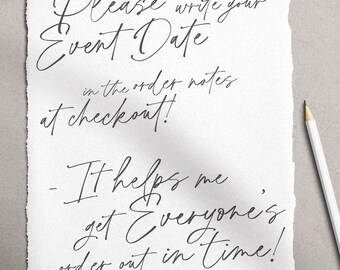 Please write your
Event Date
in the order notes
at checkout!
- It helps me
get Everyone's
order out in time!